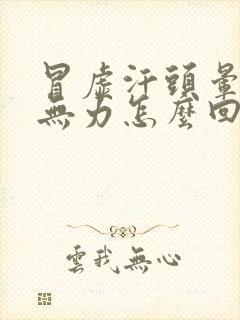 冒虛汗頭暈
無力怎麼回
雲我無心